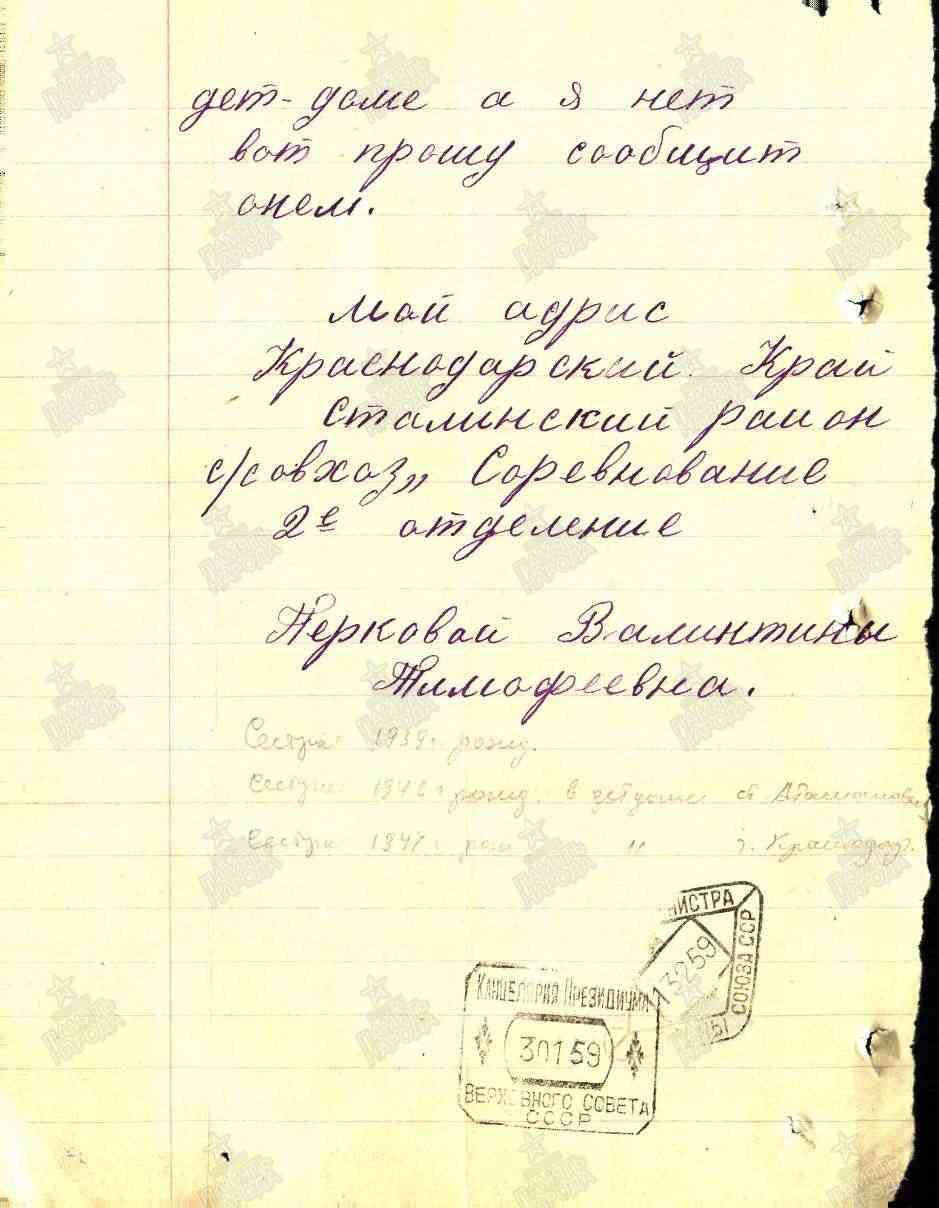 дет-доме а я нет
вот прошу сообщит
онем.
Мой адрис
Краснодарский. Край
Сталинский район
с/совхоз„ Соревнование
2е отделение
Перковой Валинтины
Тимофеевна.
Сестра 1939г. рожд.
Сестра г. рожд. в детдоме ст
Сестра г. " г. Краснодар.
НИСТРА
СОЮЗА ССР
13259
Канцелярия Президиума
30159
ВЕРХОВНОГО СОВЕТА
СССР
ПАМЯТЬ НАРОДА